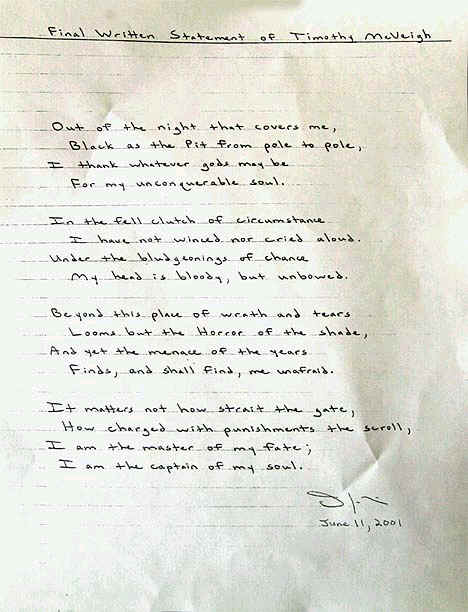 Final Written Statement of Timothy McVeigh
Out of the night that covers me,
Black as the Pit from pole to pole,
I thank whatever gods may be
For my unconquerable soul.
In the fell clutch of circumstance
I have not winced nor cried aloud.
Under the bludgeonings of chance
My head is bloody, but unbowed.
Beyond this place of wrath and tears
Looms but the Horror of the shade,
And yet the menace of the years
Finds, and shall find, me unafraid.
It matters not how strait the gate,
How charged with punishments the scroll,
I am the master of my fate;
I am the captain of my soul.
June 11, 2001